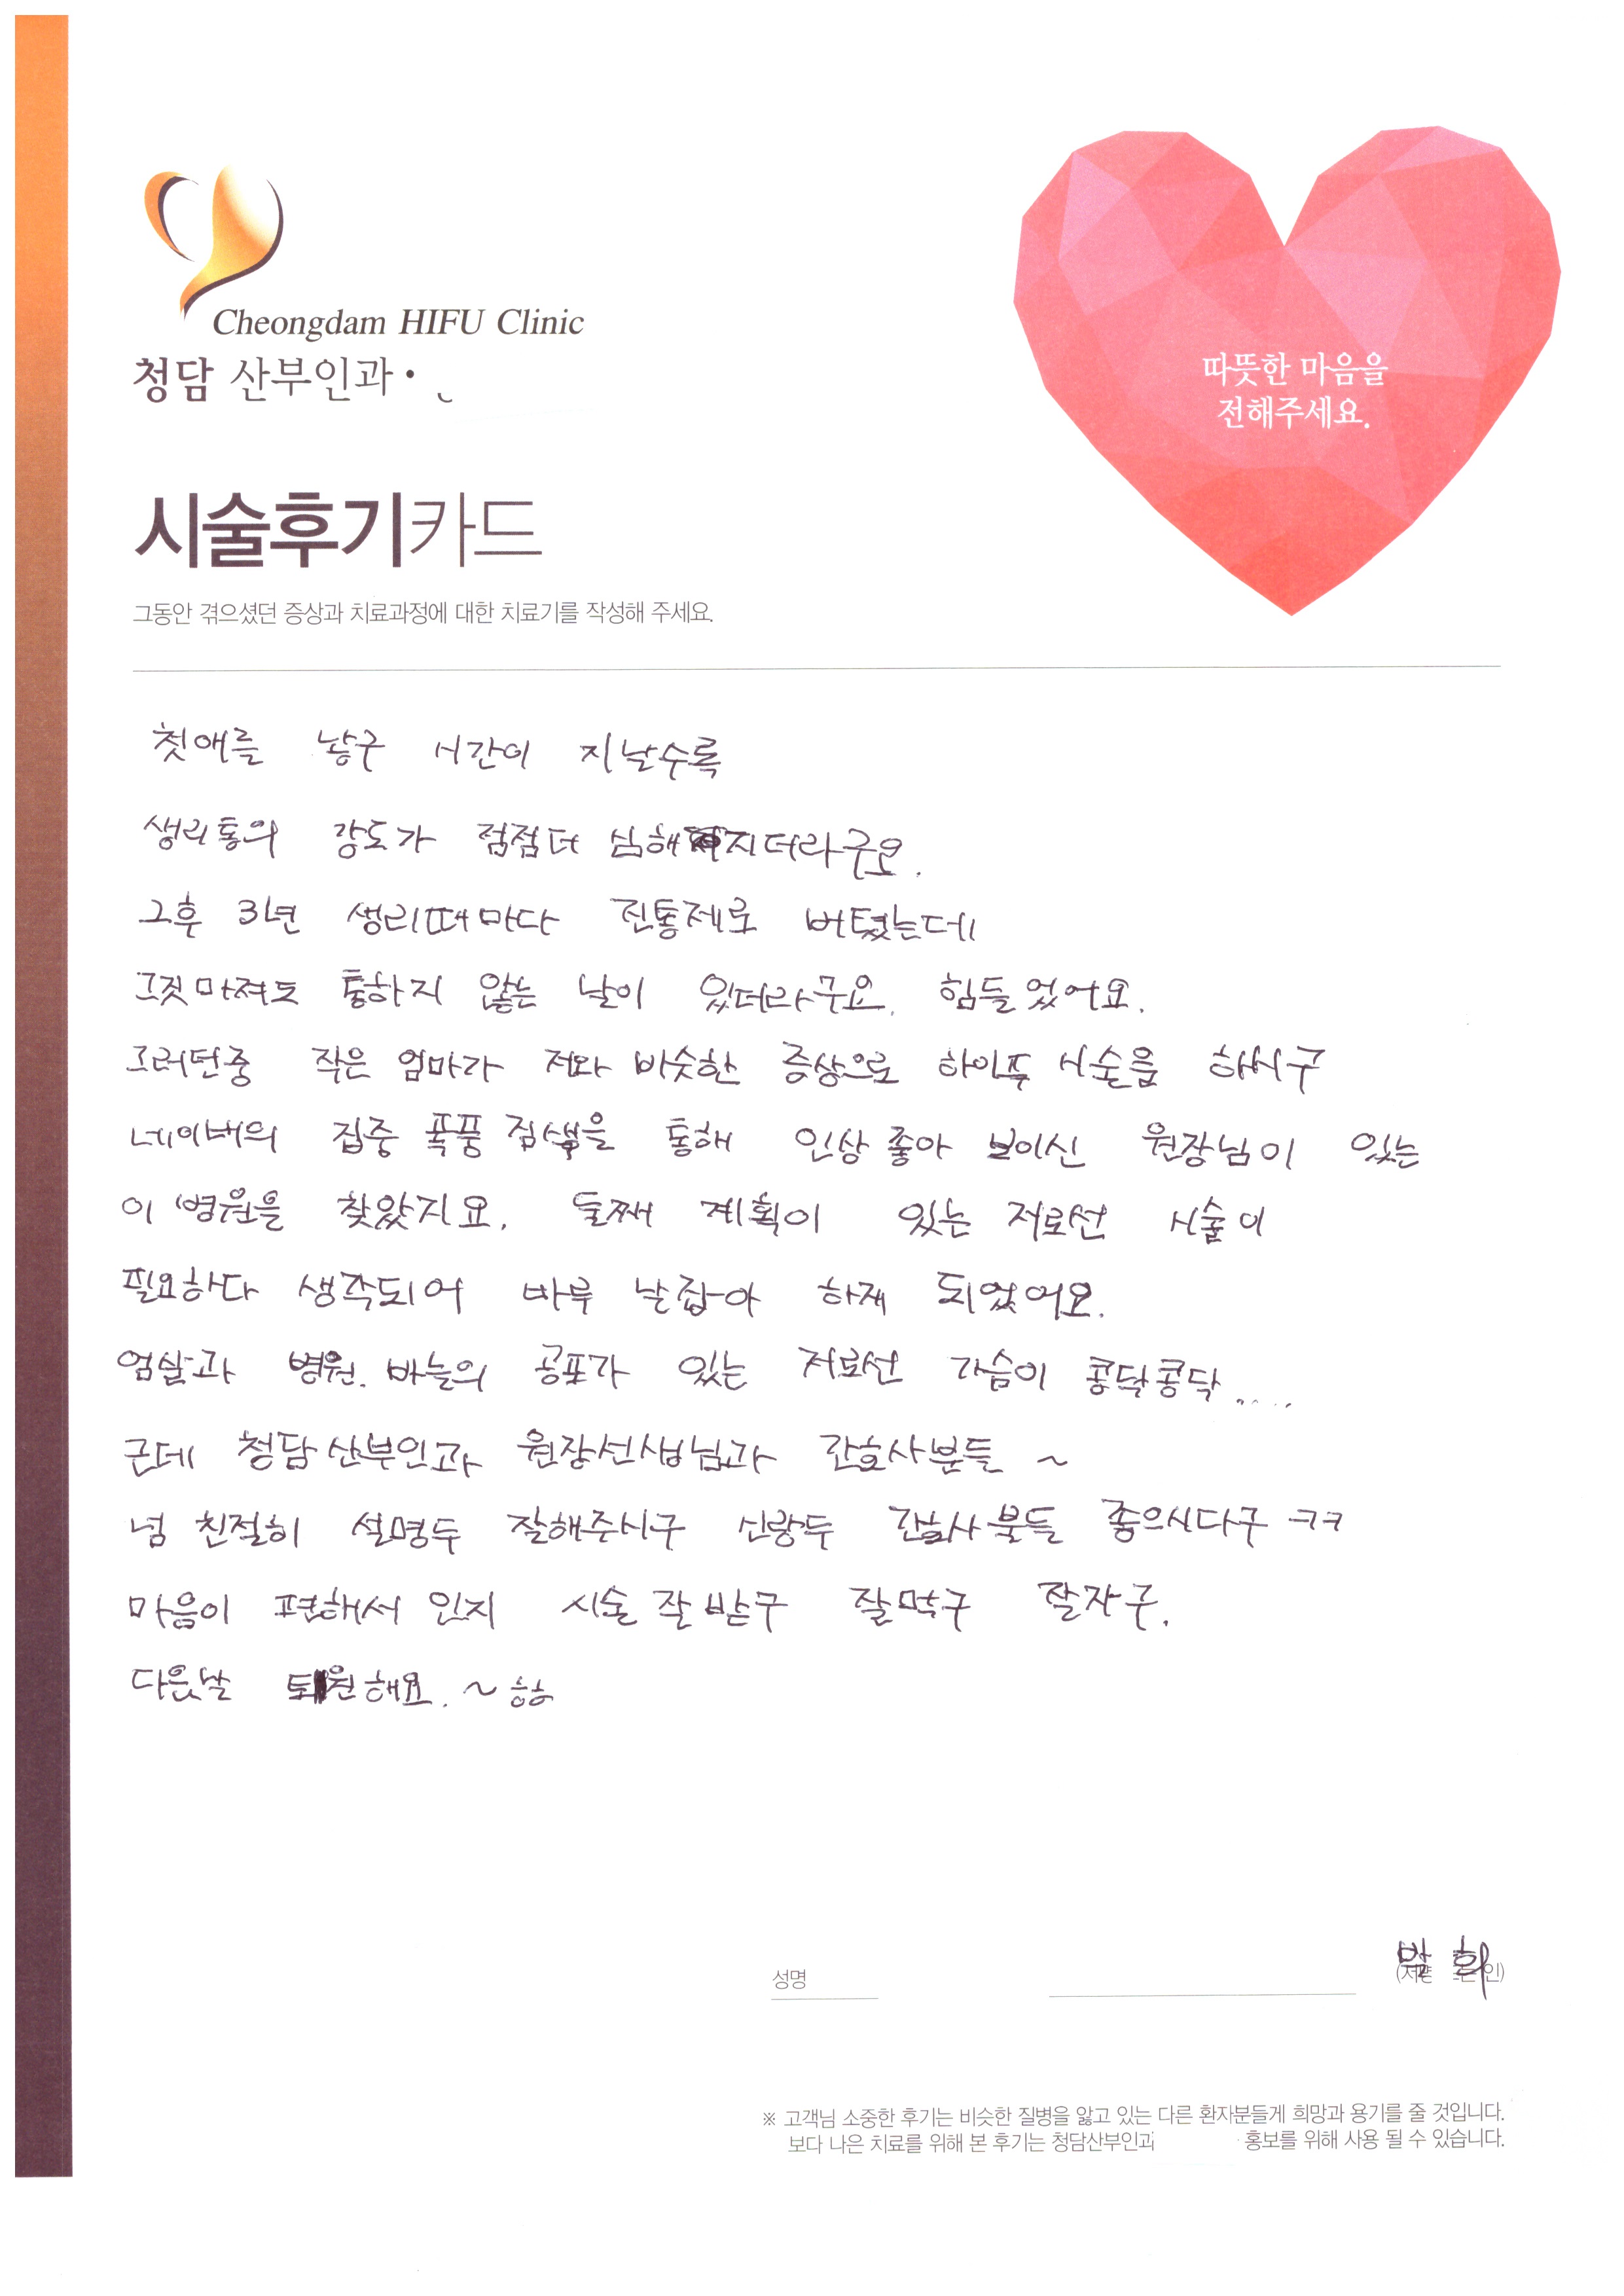 Cheongdam HIFU Clinic
청담 산부인과 •
따뜻한 마음을
전해주세요.
시술후기카드
그동안 겪으셨던 증상과 치료과정에 대한 치료기를 작성해 주세요.
첫애를 낳구 시간이 지날수록
생리통의 강도가 점점더 심해지더라구요.
그후 3년 생리때마다 진통제로 버텼는데
그것마져도 통하지 않는 날이 있더라구요. 힘들었어요.
그러던중 작은 엄마가 저와 비슷한 증상으로 하이푸 시술을 하시구
네이버의 집중 폭풍 검색을 통해 인상 좋아 보이신 원장님이 있는
이 병원을 찾았지요. 둘째 계획이 있는 저로선 시술이
필요하다 생각되어 바루 날잡아 하게 되었어요.
엄살과 병원. 바늘의 공포가 있는 저로선 가슴이 콩닥콩닥.....
근데 청담산부인과 원장선생님과 간호사분들 ~
넘 친절히 설명두 잘해주시구 신랑두 간호사분들 좋으시다구 ㅋㅋ
마음이 편해서 인지 시술 잘 받구 잘먹구 잘자구.
다음날 퇴원해요. ~ ㅎㅎ
성명
박 희
※ 고객님 소중한 후기는 비슷한 질병을 앓고 있는 다른 환자분들게 희망과 용기를 줄 것입니다.
보다 나은 치료를 위해 본 후기는 청담산부인과 홍보를 위해 사용 될 수 있습니다.